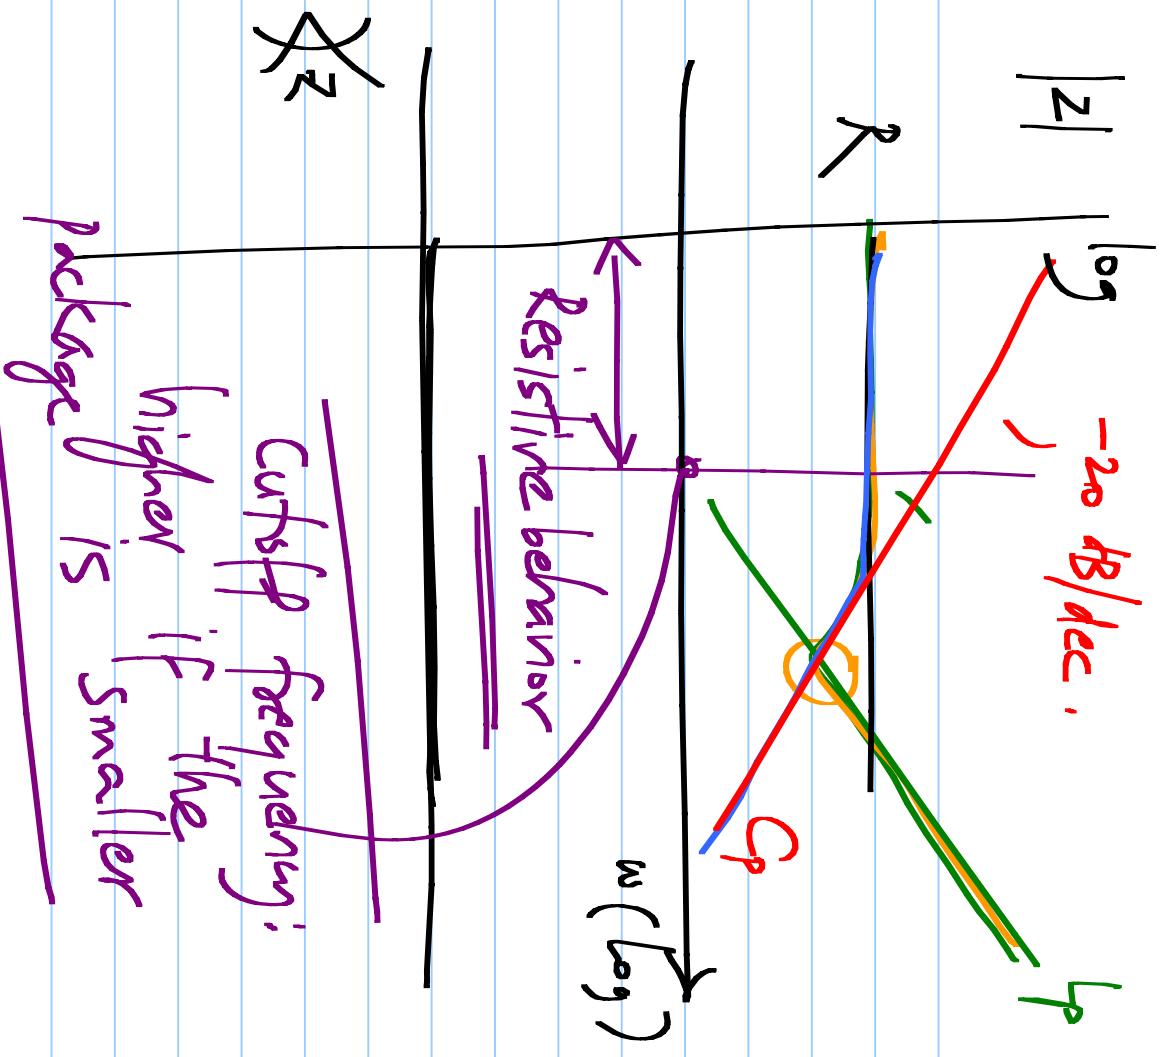 |Z|
log
-20 dB/dec.
R
Lp
Cp
ω (log)
Resistive behavior
∠Z
Cutoff frequency:
higher if the
package is smaller